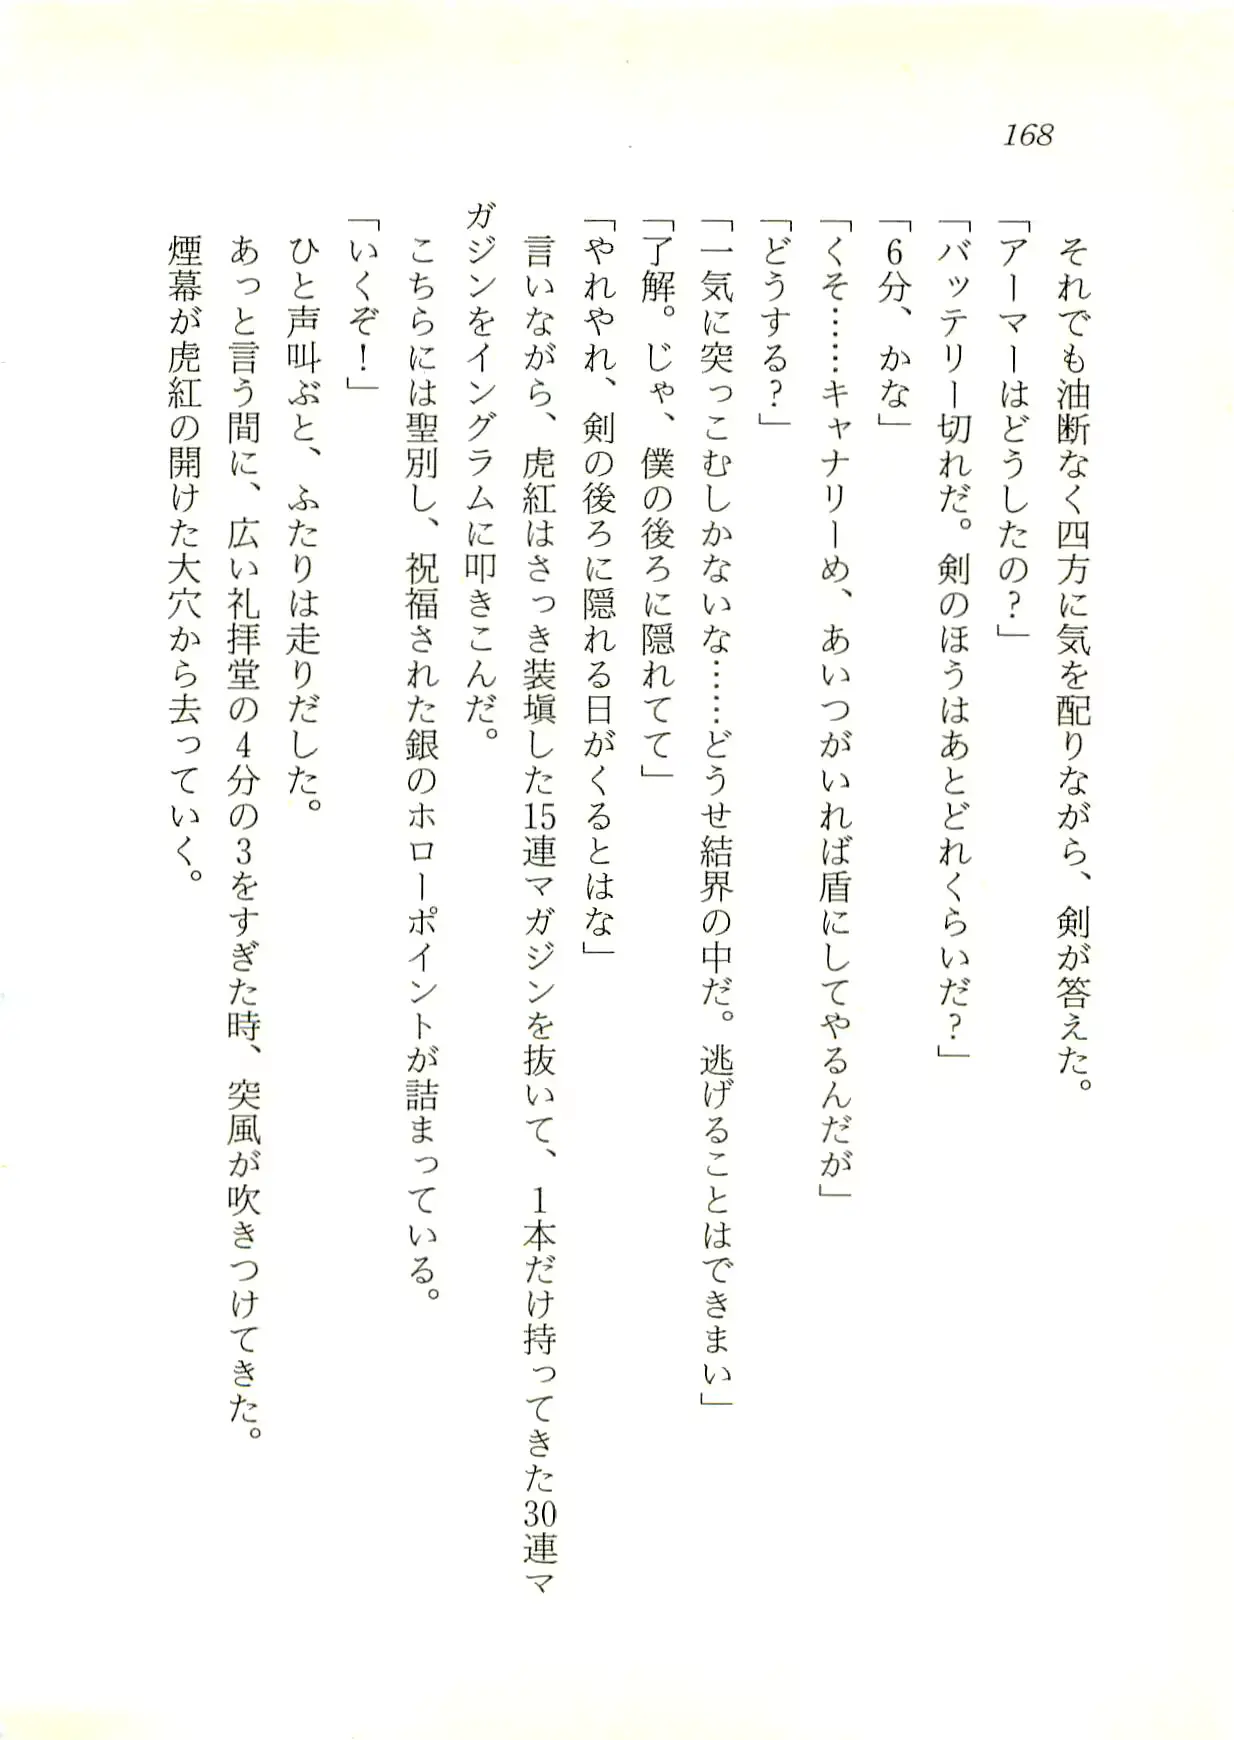 168
それでも油断なく四方に気を配りながら、剣が答えた。
「アーマーはどうしたの？」
「バッテリー切れだ。剣のほうはあとどれくらいだ？」
「6分、かな」
「くそ……キャナリーめ、あいつがいれば盾にしてやるんだが」
「どうする？」
「一気に突っこむしかないな……どうせ結界の中だ。逃げることはできまい」
「了解。じゃ、僕の後ろに隠れてて」
「やれやれ、剣の後ろに隠れる日がくるとはな」
言いながら、虎紅はさっき装塡した15連マガジンを抜いて、1本だけ持ってきた30連マ
ガジンをイングラムに叩きこんだ。
こちらには聖別し、祝福された銀のホローポイントが詰まっている。
「いくぞ！」
ひと声叫ぶと、ふたりは走りだした。
あっと言う間に、広い礼拝堂の4分の3をすぎた時、突風が吹きつけてきた。
煙幕が虎紅の開けた大穴から去っていく。